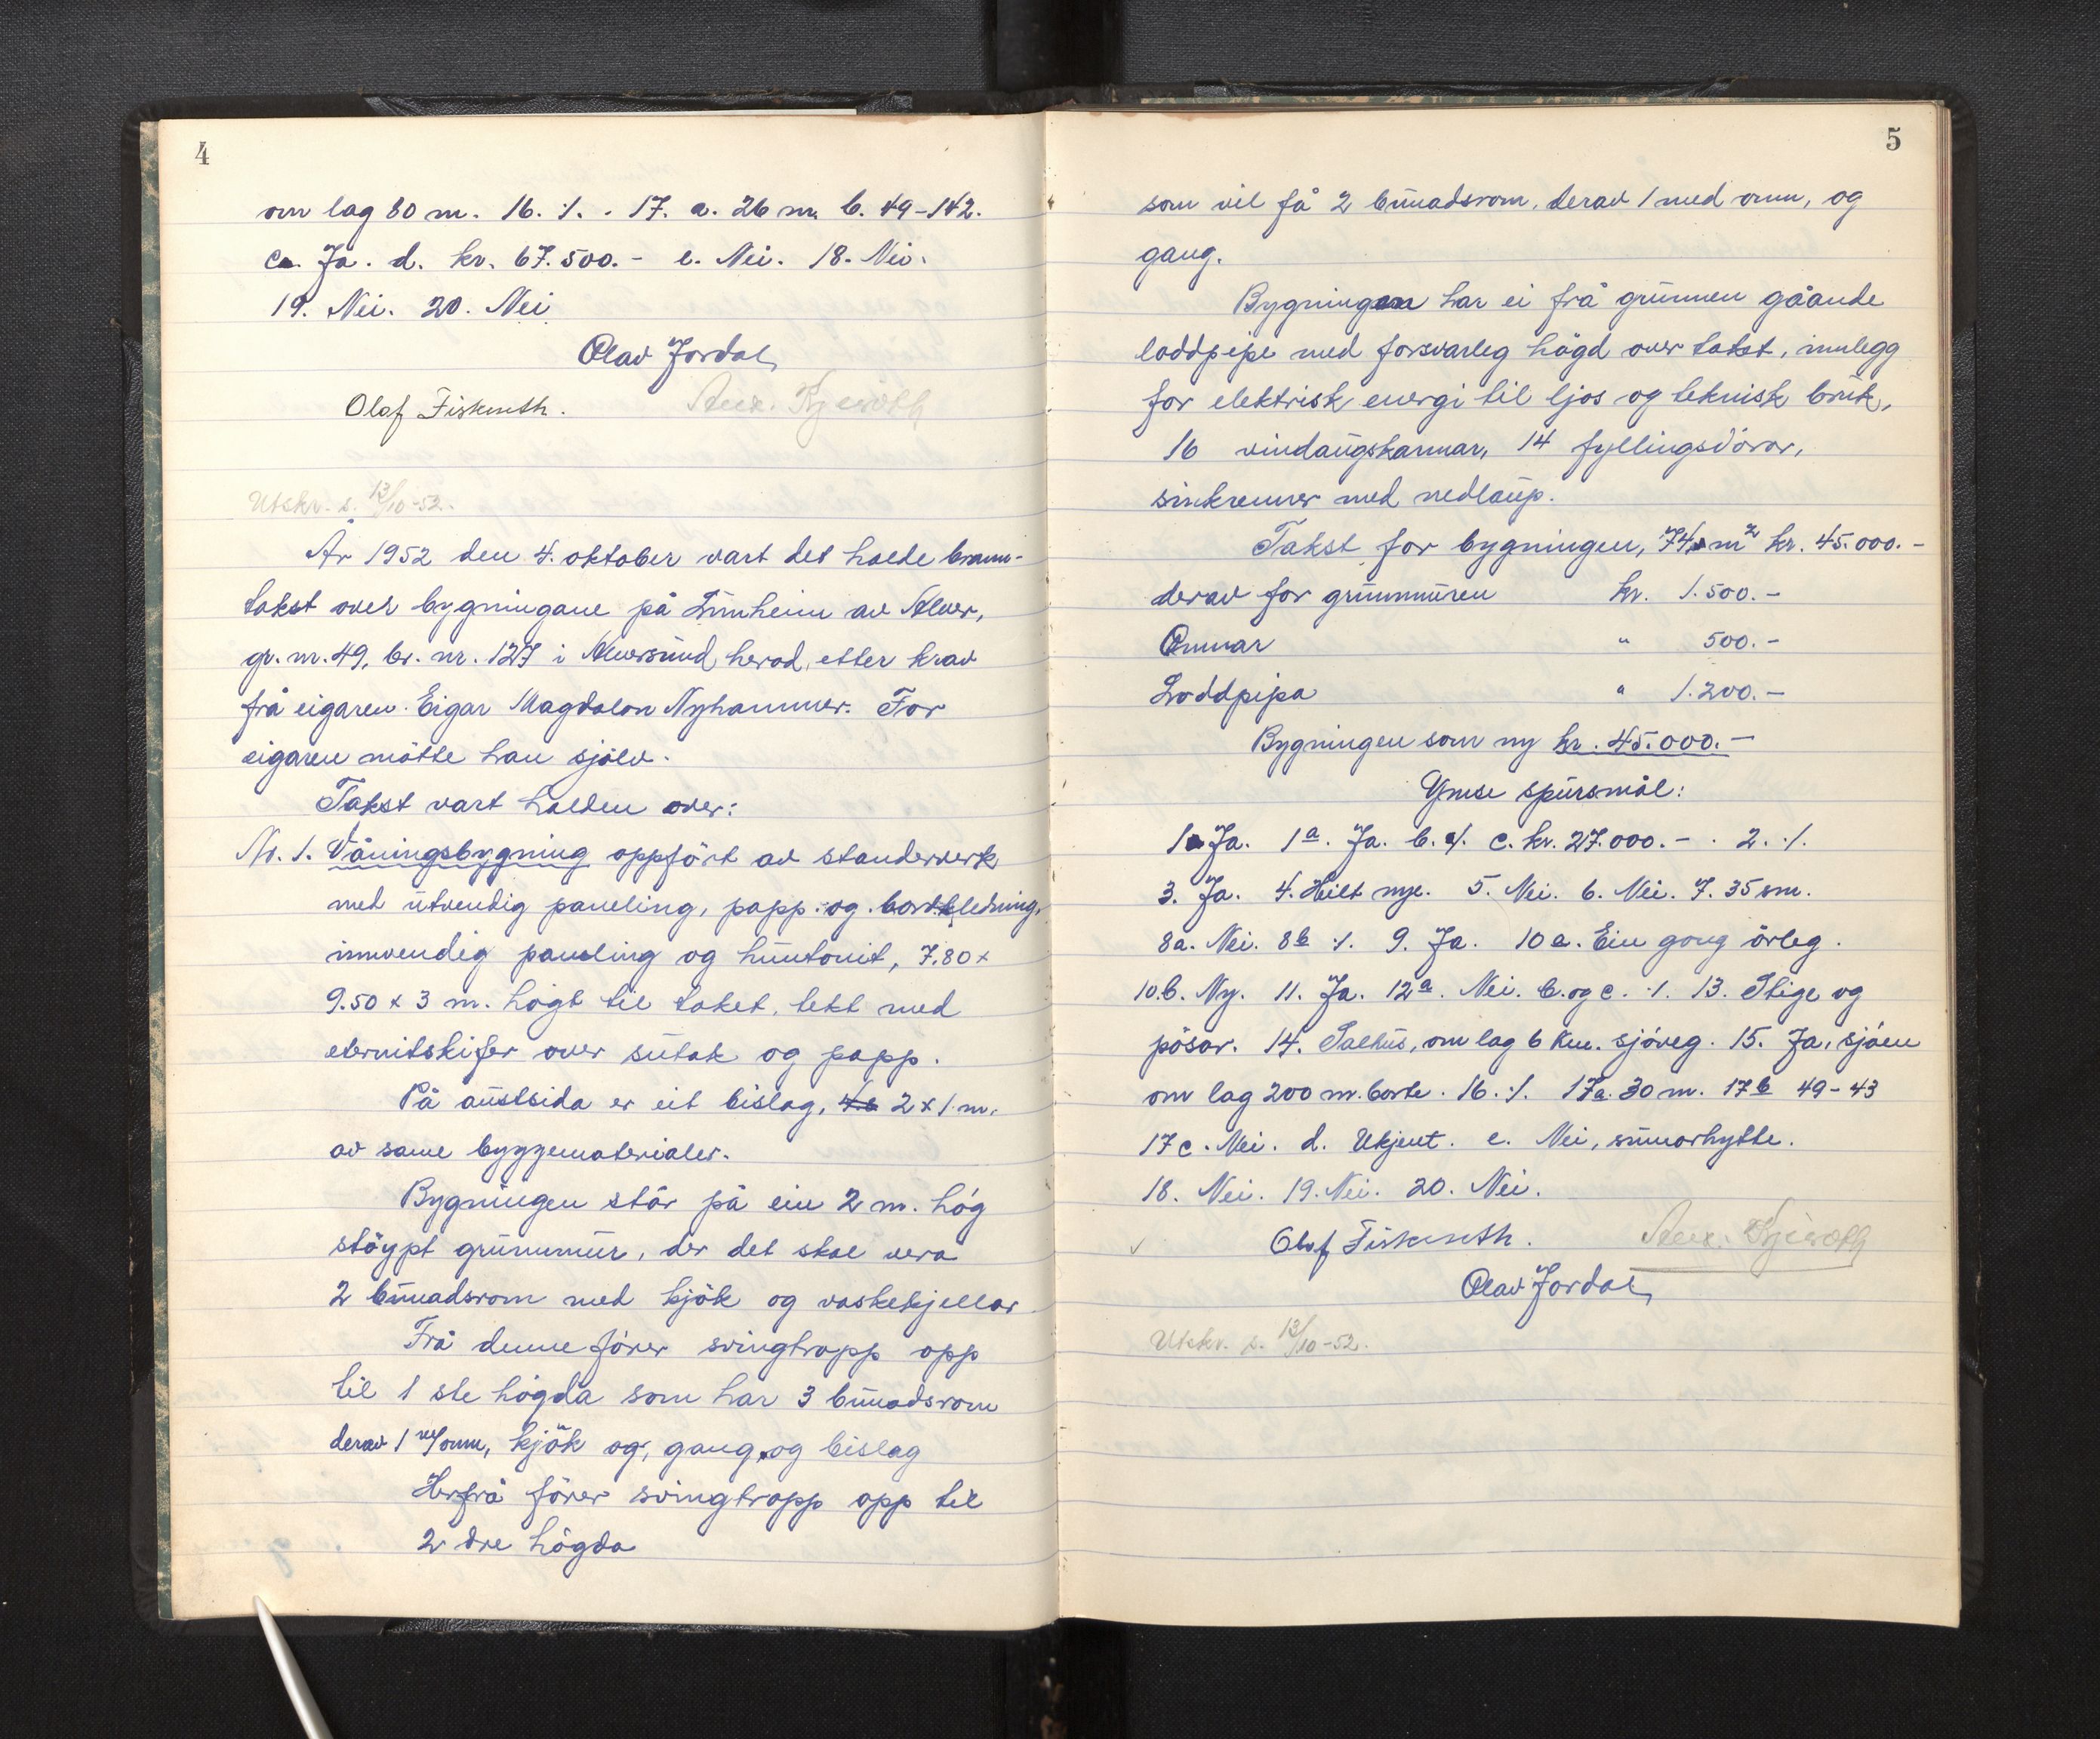 4
om lag 80 m. 16. ./. . 17. a. 26 m. b. 49-142.
c. Ja. d. kr. 67.500.- e. Nei. 18. Nei.
19. Nei. 20. Nei
Olav Jordal
Olaf Fisknuth.
Utskr. s. 13/10-52.
År 1952 den 4. oktober vart det halde brann-
takst over bygningane på Tunheim av Alver,
gr. nr. 49, br. nr. 127 i Alversund herad, etter krav
frå eigaren. Eigar Magdalon Nyhammer. For
eigaren møtte han sjølv.
Takst vart halden over:
Nr. 1. Våningsbygning oppført av standerverk
med utvendig paneling, papp og bordkledning,
innvendig paneling og huntonit, 7.80 x
9.50 x 3 m. høgt til taket, tekt med
eternitskifer over sutak og papp.
På austsida er eit bislag, 2 x 1 m.
av same byggematerialer.
Bygningen står på ein 2 m. høg
støypt grunnmur, der det skal vera
2 bunadsrom med kjøk og vaskekjellar
Frå denne fører svingtrapp opp
til 1 ste høgda som har 3 bunadsrom
derav 1 m/omn, kjøk og, gang og bislag
Herfrå fører svingtrapp opp til
2 dre høgda
5
som vil få 2 bunadsrom, derav 1 med omn, og
gang.
Bygningen har ei frå grunnen gåande
loddpipe med forsvarleg høgd over taket, innlegg
for elektrisk energi til ljos og teknisk bruk,
16 vindaugskarmar, 14 fyllingsdører,
sinkrenner med nedlaup.
Takst for bygningen, 74 m² kr. 45.000.-
derav for grunnmuren kr. 1.500.-
Omnar " 500.-
Loddpipa " 1.200.-
Bygningen som ny kr. 45.000.-
Ymse spursmål:
1. Ja. 1a. Ja. b. ./. c. kr. 27.000.- . 2. ./.
3. Ja. 4. Heilt nye. 5. Nei. 6. Nei. 7. 35 sm.
8a. Nei. 8b ./. 9. Ja. 10 a. Ein gong årleg.
10.b. Ny. 11. Ja. 12a. Nei. b. og c. ./. 13. Stige og
pøsar. 14. Salhus, om lag 6 km. sjøveg. 15. Ja, sjøen
om lag 200 m. borte. 16. ./. 17a. 30 m. 17b 49-43
17 c. Nei. d. Ukjent. e. Nei, sumarhytte.
18. Nei. 19. Nei. 20. Nei.
Olaf Fisknuth.
Olav Jordal
Utskr. s. 13/10-52.